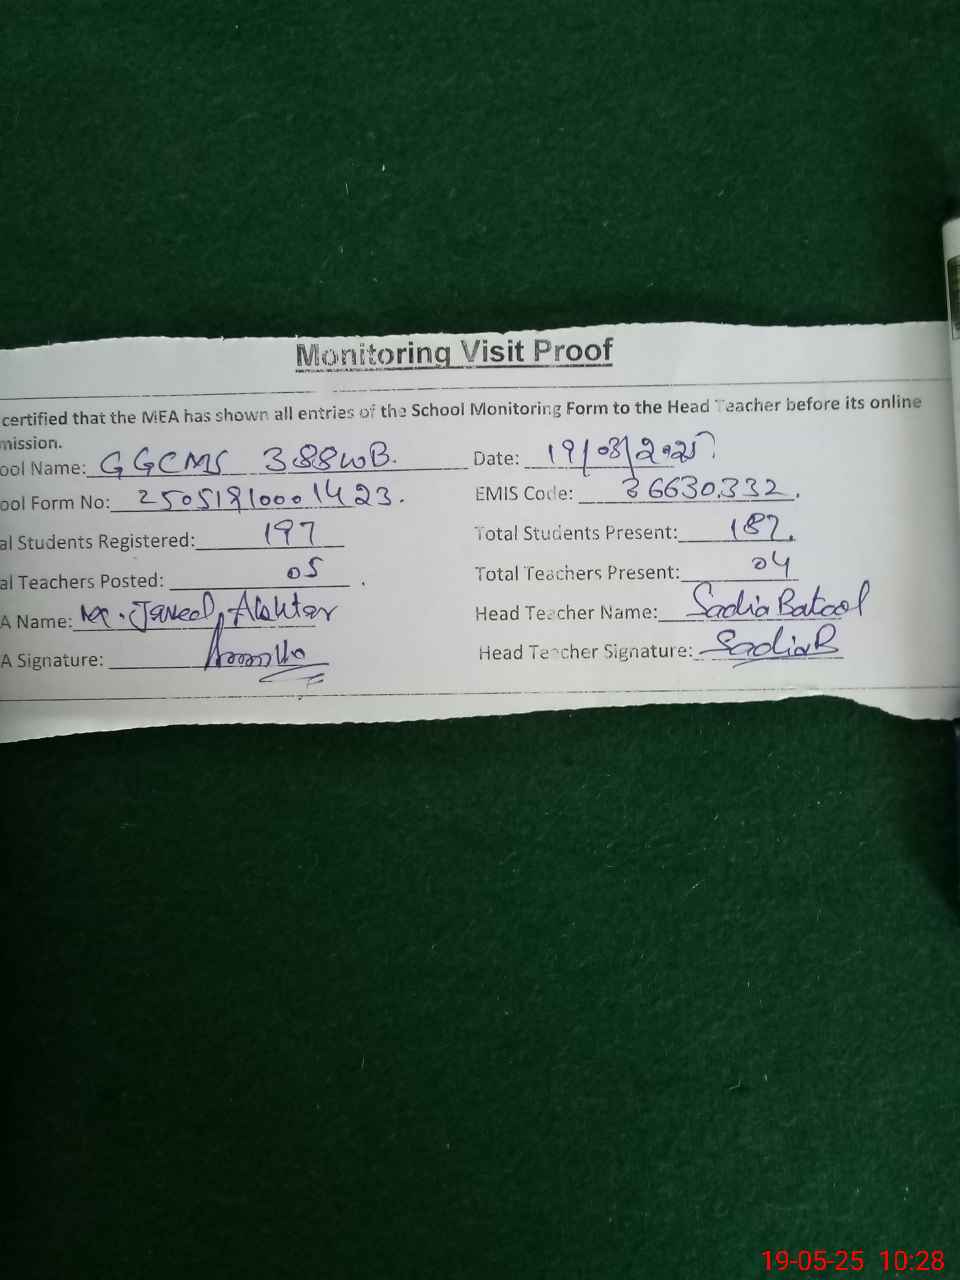 Monitoring Visit Proof
certified that the MEA has shown all entries of the School Monitoring Form to the Head Teacher before its online
mission.
ool Name: GGCMS 388WB. Date: 19/03/2025
ool Form No: 25051910001423. EMIS Code: 36630332.
al Students Registered: 197 Total Students Present: 187.
al Teachers Posted: 05. Total Teachers Present: 04
A Name: M. Javeed Akhtar Head Teacher Name: Sadia Batool
A Signature: Head Teacher Signature: SadiaB
19-05-25 10:28